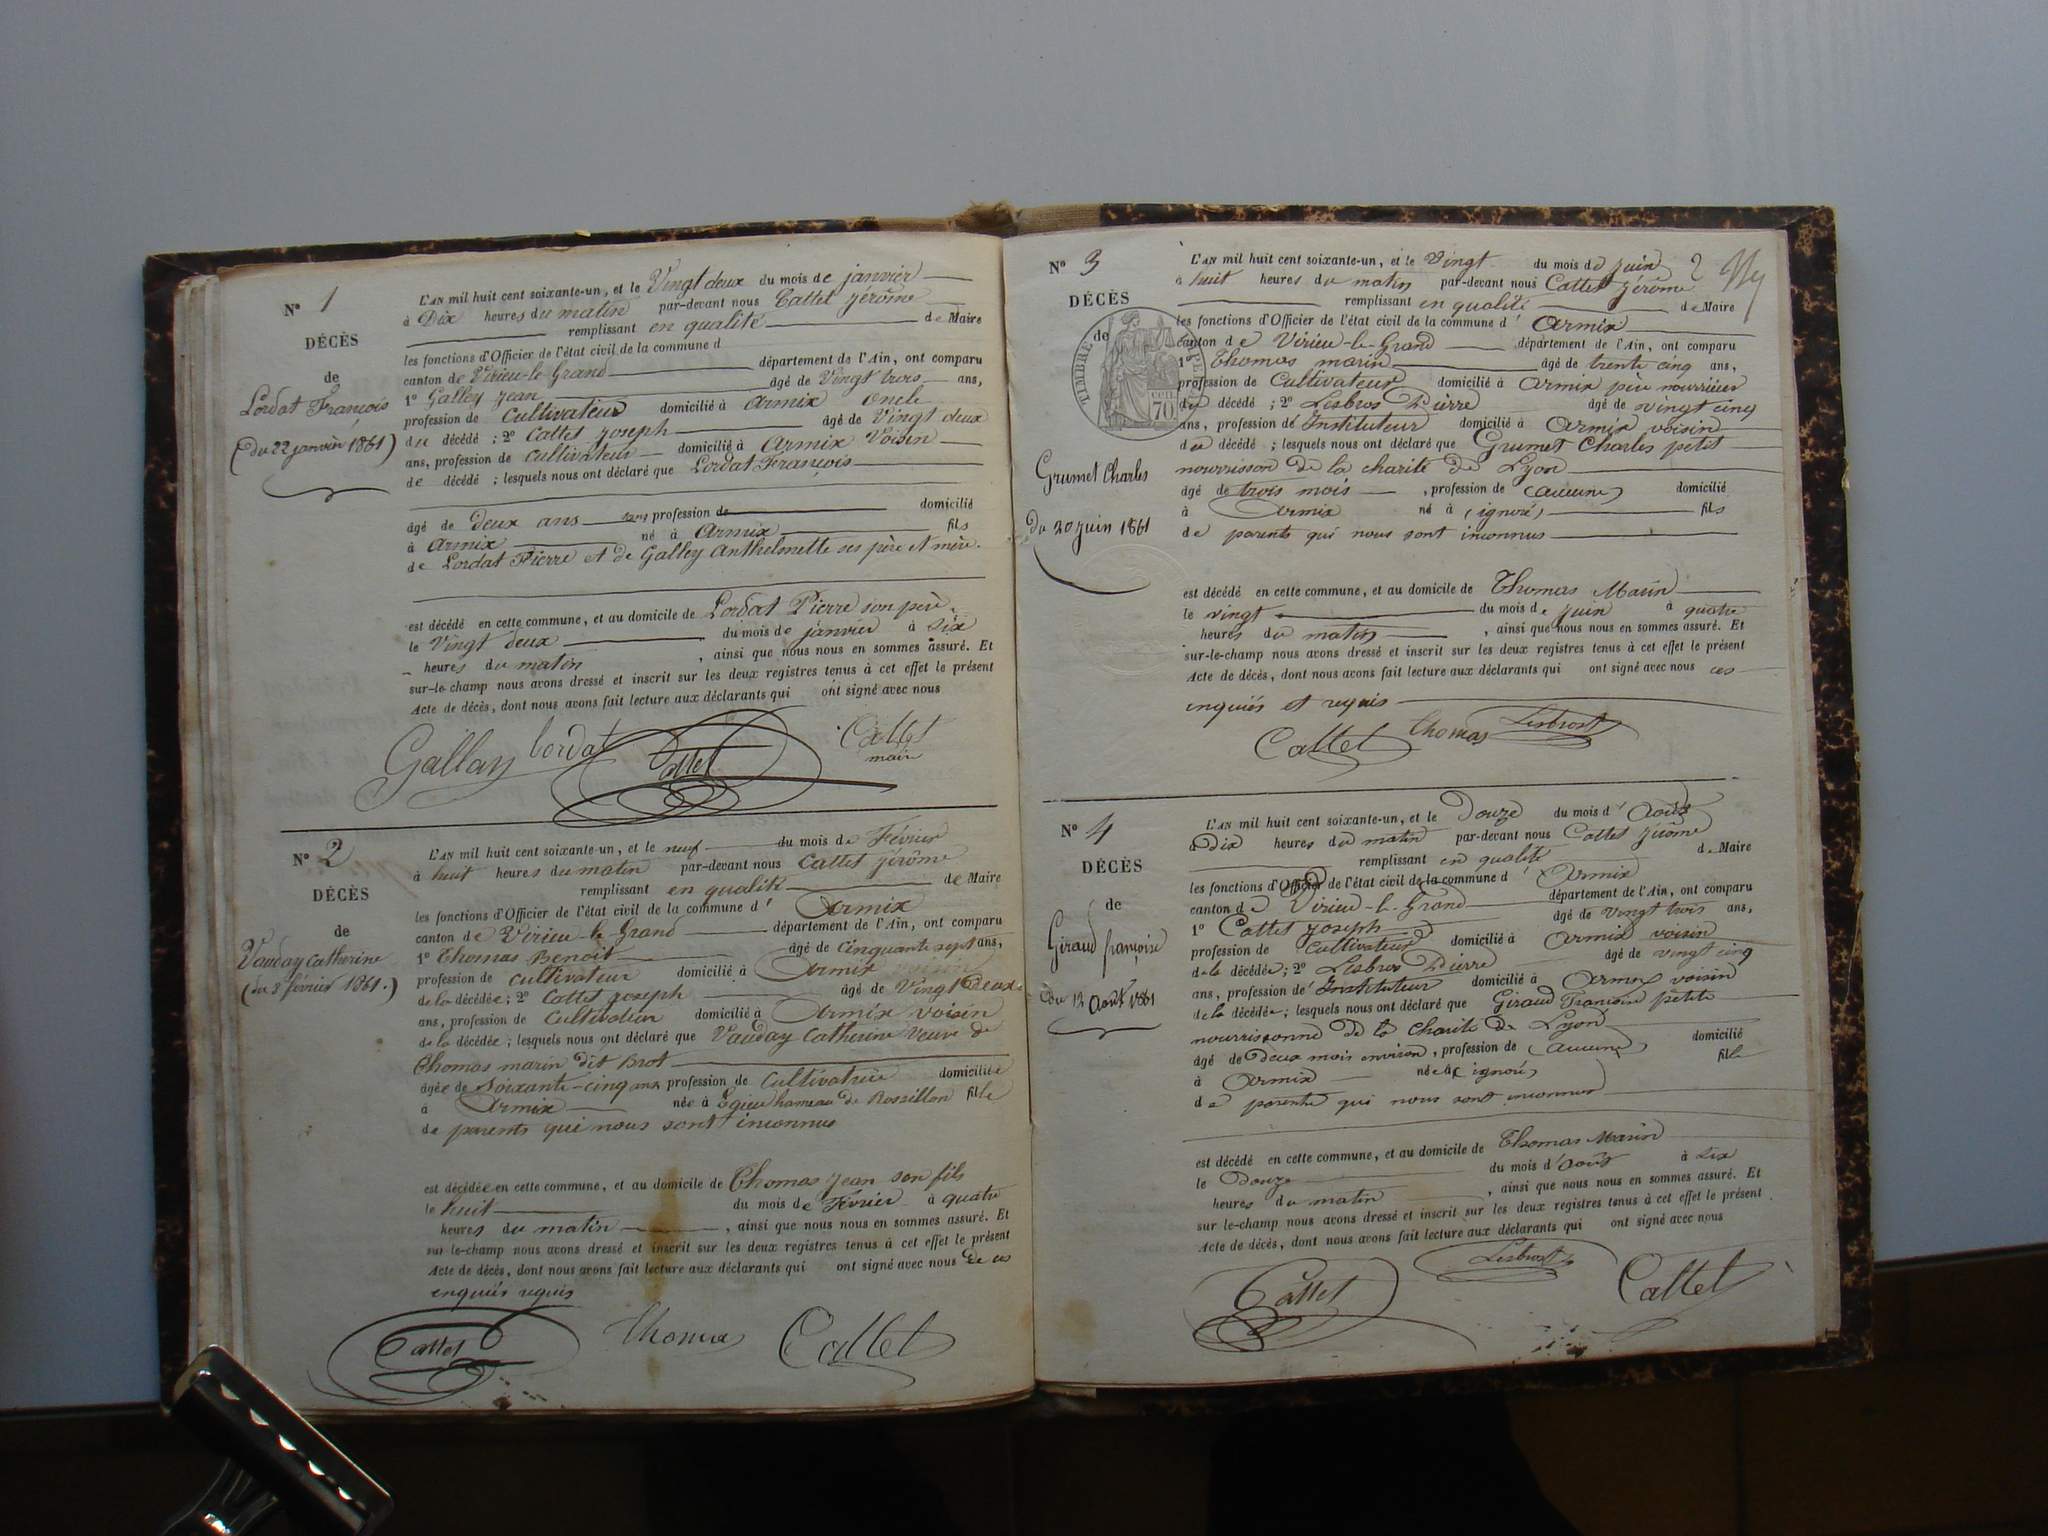 N° 1
DÉCÈS
de
Lordat François
(du 22 janvier 1861)
L'AN mil huit cent soixante-un, et le Vingt deux du mois de janvier
à Dix heures du matin par-devant nous Cattet Jérôme
remplissant en qualité de Maire
les fonctions d'Officier de l'état civil de la commune d
canton de Virieu-le Grand département de l'Ain, ont comparu
1° Galley Jean âgé de Vingt trois ans,
profession de Cultivateur domicilié à Armix oncle
du décédé ; 2° Cattet Joseph âgé de Vingt deux
ans, profession de Cultivateur domicilié à Armix Voisin
de décédé ; lesquels nous ont déclaré que Lordat François
âgé de deux ans sans profession de domicilié
à Armix né à Armix fils
de Lordat Pierre et de Galley Anthelmette ses père et mère.
est décédé en cette commune, et au domicile de Lordat Pierre son père,
le Vingt deux du mois de janvier à Six
heures du matin , ainsi que nous nous en sommes assuré. Et
sur-le-champ nous avons dressé et inscrit sur les deux registres tenus à cet effet le présent
Acte de décès, dont nous avons fait lecture aux déclarants qui ont signé avec nous
Gallay lordat Cattet Cattet
maire
N° 2
DÉCÈS
de
Vauday Catherine
(du 8 février 1861.)
L'AN mil huit cent soixante-un, et le neuf du mois de Février
à huit heures du matin par-devant nous Cattet Jérôme
remplissant en qualité de Maire
les fonctions d'Officier de l'état civil de la commune d' Armix
canton de Virieu-le Grand département de l'Ain, ont comparu
1° Thomas Benoit âgé de Cinquante sept ans,
profession de Cultivateur domicilié à Armix voisin
de la décédée ; 2° Cattet Joseph âgé de Vingt Deux
ans, profession de Cultivateur domicilié à Armix voisin
de la décédée ; lesquels nous ont déclaré que Vauday Catherine Veuve de
Thomas marin dit Brot
âgée de Soixante-cinq ans profession de Cultivatrice domiciliée
à Armix née à Egieu hameau de Rossillon fille
de parents qui nous sont inconnus
est décédée en cette commune, et au domicile de Thomas Jean son fils
le huit du mois de Février à quatre
heures du matin , ainsi que nous nous en sommes assuré. Et
sur-le-champ nous avons dressé et inscrit sur les deux registres tenus à cet effet le présent
Acte de décès, dont nous avons fait lecture aux déclarants qui ont signé avec nous de ces
enquiés requis
Cattet Thomas Cattet
N° 3
DÉCÈS
de
TIMBRE IMPERIAL
70 CEN.
Grumet Charles
du 20 juin 1861
L'AN mil huit cent soixante-un, et le Vingt du mois de juin 2
à huit heures du matin par-devant nous Cattet Jérôme
remplissant en qualité de Maire
les fonctions d'Officier de l'état civil de la commune d' Armix
canton de Virieu-le-Grand département de l'Ain, ont comparu
1° Thomas marin âgé de trente cinq ans,
profession de Cultivateur domicilié à Armix père nourricier
du décédé ; 2° Lesbros Pierre âgé de vingt cinq
ans, profession d'Instituteur domicilié à Armix voisin
du décédé ; lesquels nous ont déclaré que Grumet Charles petit
nourrisson de la charité de Lyon
âgé de trois mois , profession de (aucune) domicilié
à Armix né à (ignoré) fils
de parents qui nous sont inconnus
est décédé en cette commune, et au domicile de Thomas Marin
le vingt du mois de juin à quatre
heures du matin , ainsi que nous nous en sommes assuré. Et
sur-le-champ nous avons dressé et inscrit sur les deux registres tenus à cet effet le présent
Acte de décès, dont nous avons fait lecture aux déclarants qui ont signé avec nous ces
enquiés et requis
Cattet thomas Lesbros
N° 4
DÉCÈS
de
Giraud françoise
du 12 Août 1861
L'AN mil huit cent soixante-un, et le Douze du mois d' Août
à Dix heures du matin par-devant nous Cattet Jérôme
remplissant en qualité de Maire
les fonctions d'Officier de l'état civil de la commune d' Armix
canton de Virieu-le-Grand département de l'Ain, ont comparu
1° Cattet Joseph âgé de Vingt trois ans,
profession de Cultivateur domicilié à Armix voisin
de la décédée ; 2° Lesbros Pierre âgé de vingt cinq
ans, profession d'Instituteur domicilié à Armix voisin
de la décédée ; lesquels nous ont déclaré que Giraud Françoise petite
nourrissonne de la Charité de Lyon
âgé de deux mois environ , profession de (aucune) domicilié
à Armix née à (ignoré) fille
de parents qui nous sont inconnus
est décédé en cette commune, et au domicile de Thomas Marin
le Douze du mois d'Août à Six
heures du matin , ainsi que nous nous en sommes assuré. Et
sur le-champ nous avons dressé et inscrit sur les deux registres tenus à cet effet le présent
Acte de décès, dont nous avons fait lecture aux déclarants qui ont signé avec nous
Cattet Lesbros Cattet